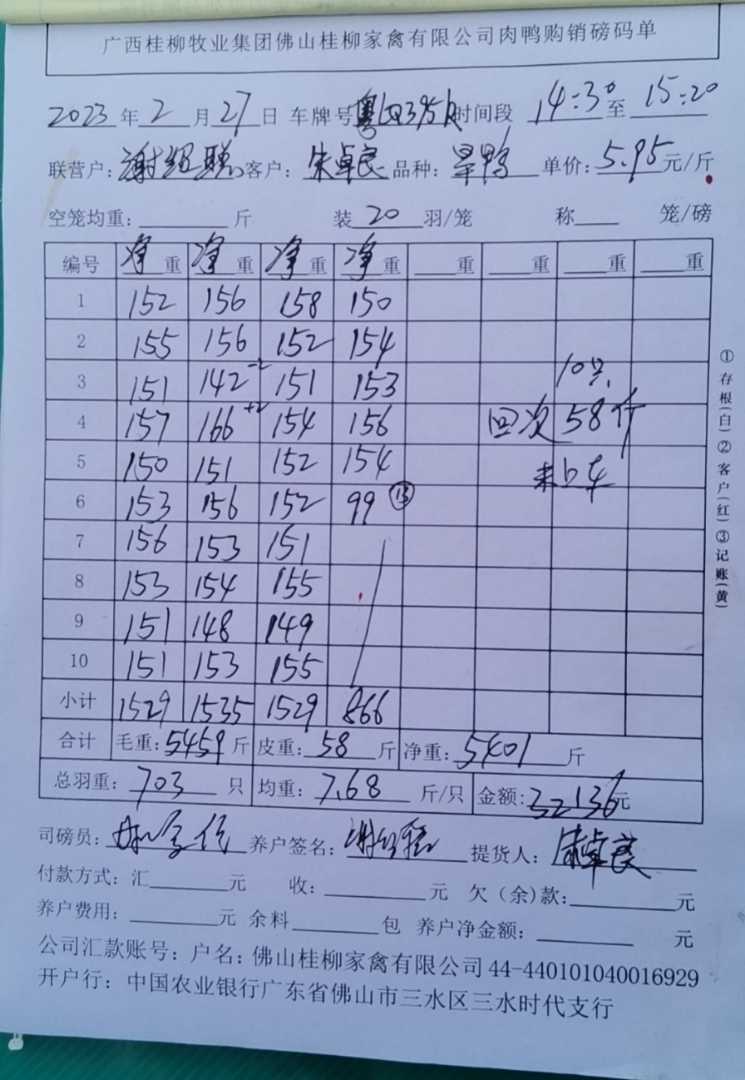 广西桂柳牧业集团佛山桂柳家禽有限公司肉鸭购销磅码单
2023 年 2 月 27 日 车牌号 粤 时间段 14:30 至 15:20
联营户: 谢 客户: 朱卓良 品种: 旱鸭 单价: 5.95 元/斤
空笼均重: 斤 装 20 羽/笼 称 笼/磅
编号 净重 净重 净重 净重 重 重 重 重
1 152 156 158 150
2 155 156 152 154
3 151 142 -2 151 153 10只
4 157 166 +2 154 156 回次 58斤
5 150 151 152 154 未上车
6 153 156 152 99 ⑬
7 156 153 151
8 153 154 155
9 151 148 149
10 151 153 155
小计 1529 1535 1529 866
合计 毛重: 5459 斤 皮重: 58 斤 净重: 5401 斤
总羽重: 703 只 均重: 7.68 斤/只 金额: 32136 元
司磅员: 养户签名: 谢 提货人: 朱卓良
付款方式: 汇 元 收: 元 欠(余)款: 元
养户费用: 元 余料 包 养户净金额: 元
公司汇款账号: 户名: 佛山桂柳家禽有限公司 44-440101040016929
开户行: 中国农业银行广东省佛山市三水区三水时代支行
①存根(白)②客户(红)③记账(黄)